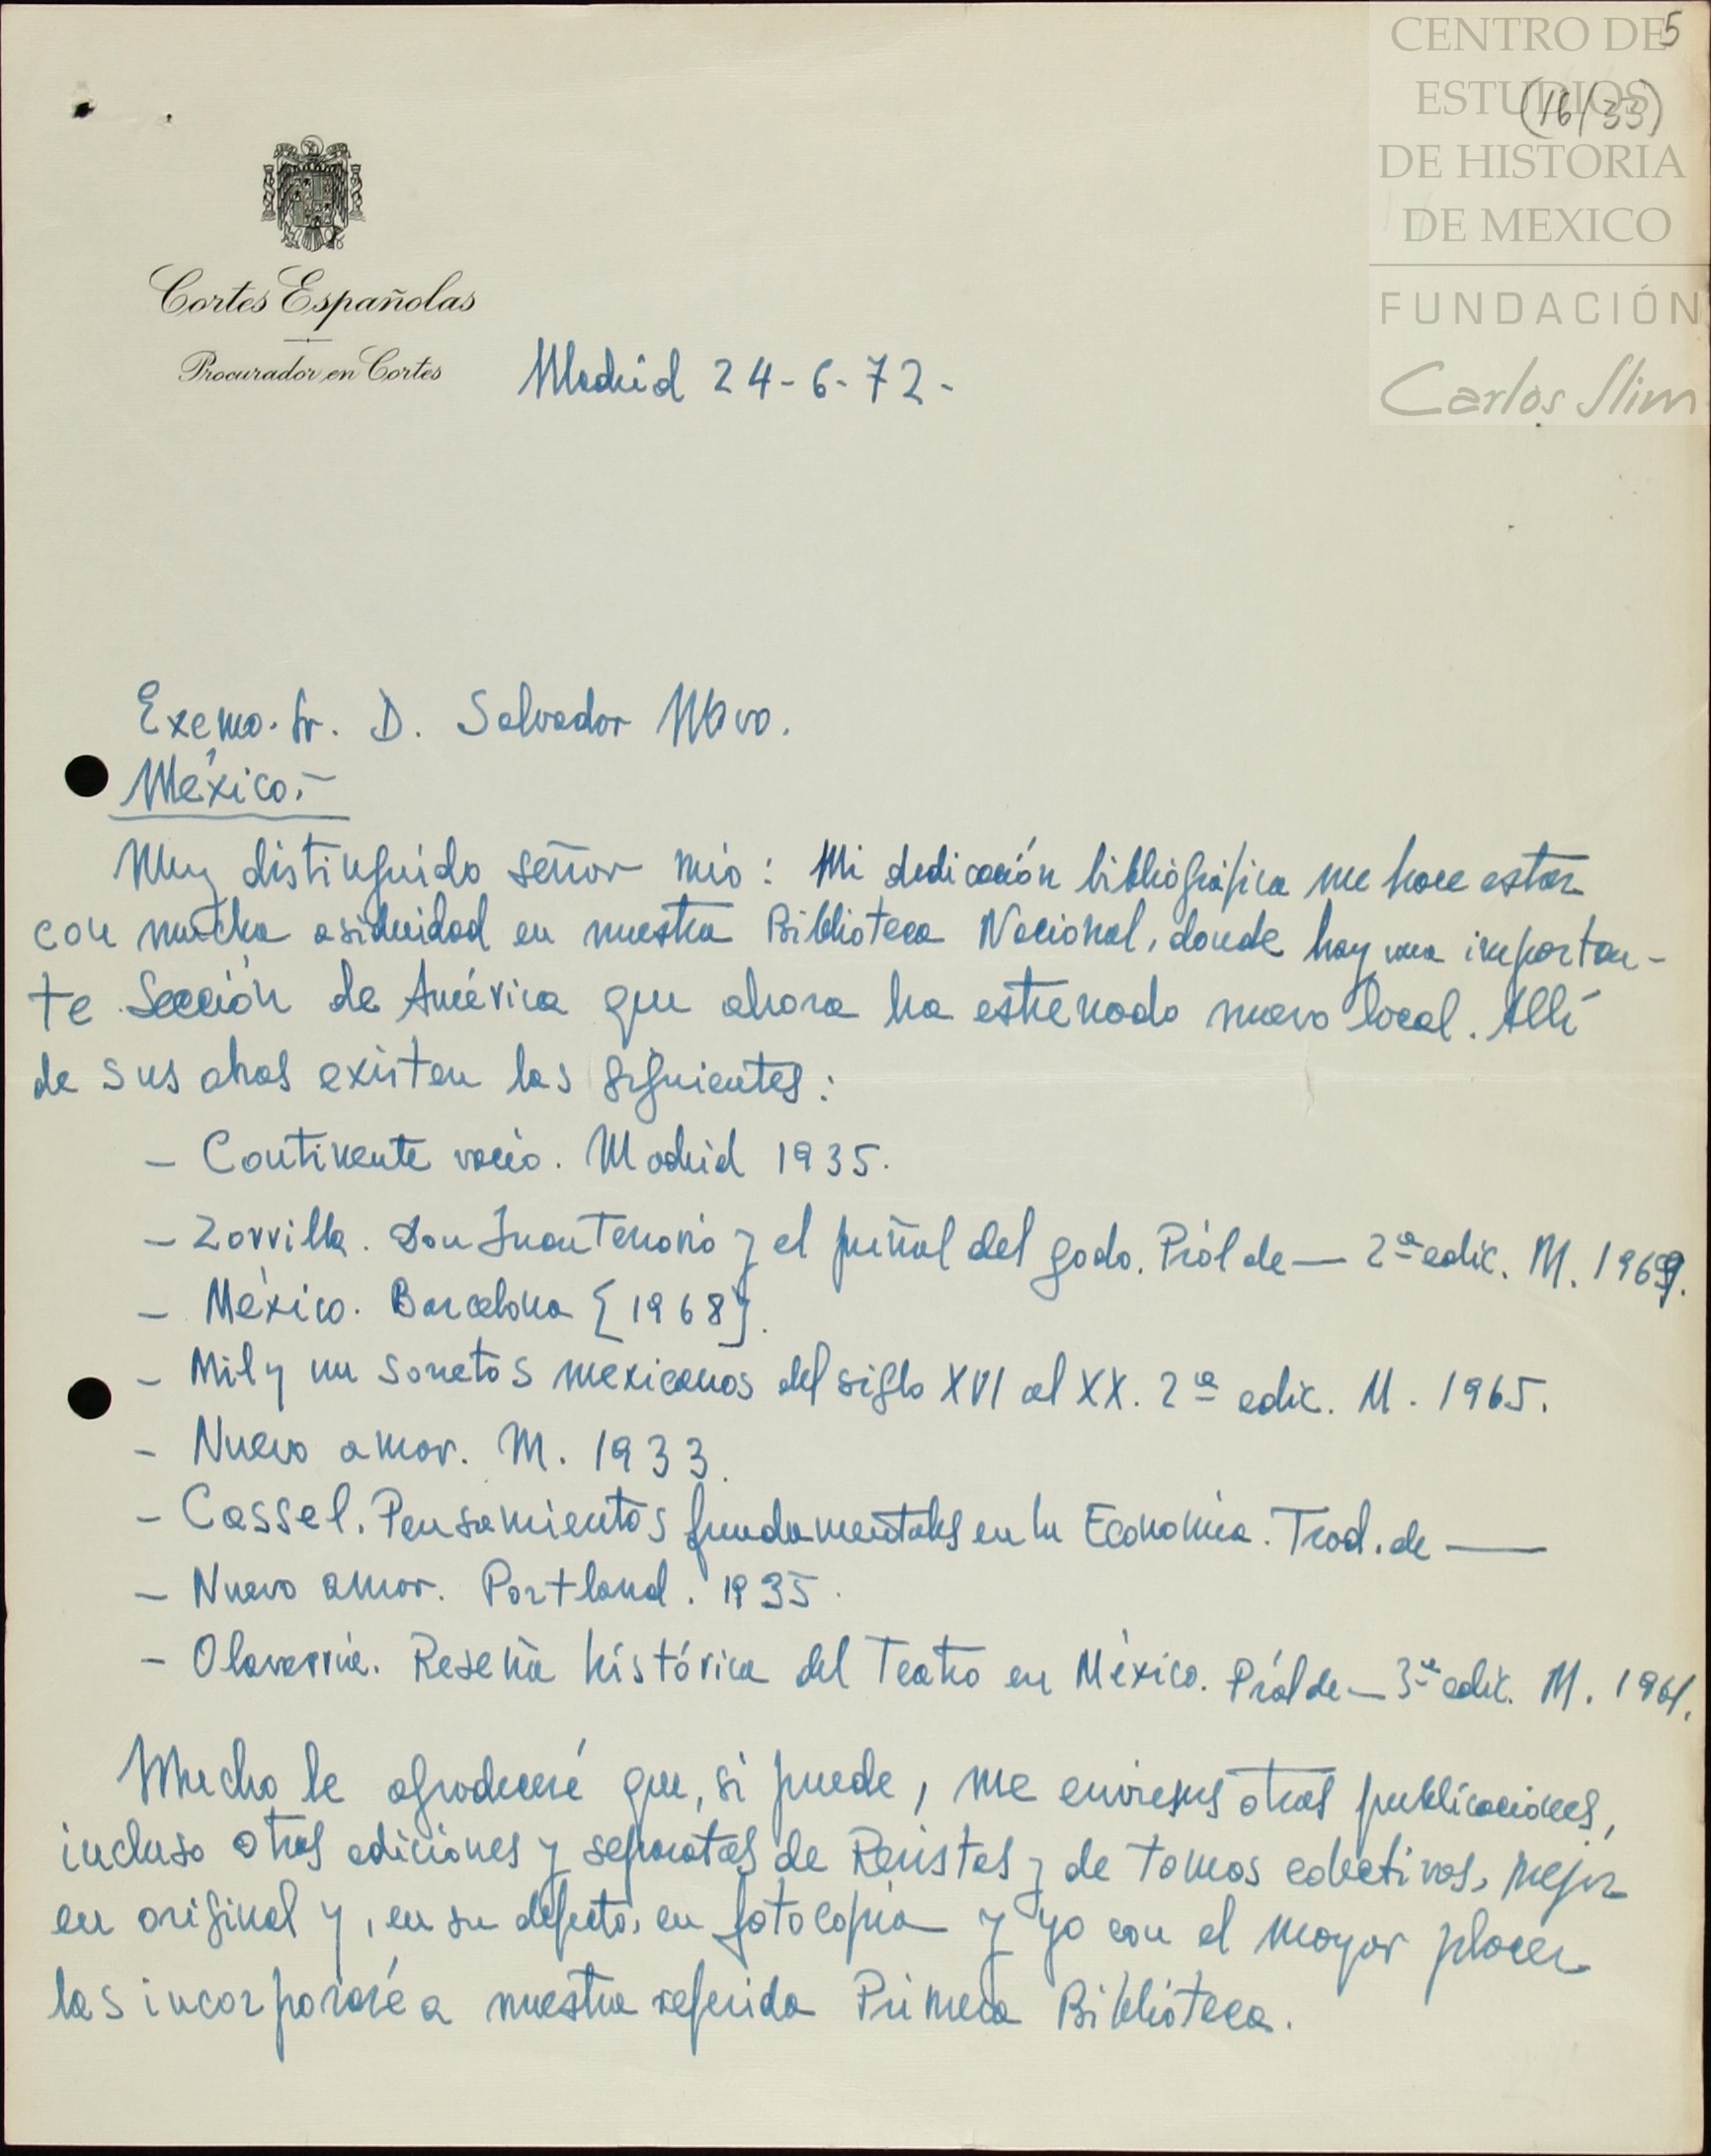 5
(16/33)
CENTRO DE
ESTUDIOS
DE HISTORIA
DE MEXICO
FUNDACIÓN
Carlos Slim
Cortes Españolas
Procurador en Cortes
Madrid 24-6-72-
Excmo. Sr. D. Salvador Novo.
México.-
Muy distinguido señor mío: Mi dedicación bibliográfica me hace estar
con mucha asiduidad en nuestra Biblioteca Nacional, donde hay una importan-
te Sección de América que ahora ha estrenado nuevo local. Allí
de sus obras existen las siguientes:
- Continente vacío. Madrid 1935.
- Zorrilla. Don Juan Tenorio y el puñal del godo. Pról de — 2ª edic. M. 1969.
- México. Barcelona [1968].
- Mil y un sonetos mexicanos del siglo XVI al XX. 2ª edic. M. 1965.
- Nuevo amor. M. 1933.
- Cassel. Pensamientos fundamentales en la Economía. Trad. de ——
- Nuevo amor. Portland. 1935.
- Olavarría. Reseña histórica del Teatro en México. Pról de — 3ª edic. M. 1961.
Mucho le agradeceré que, si puede, me envíe sus otras publicaciones,
incluso otras ediciones y separatas de Revistas y de tomos colectivos, mejor
en original y, en su defecto, en fotocopia y yo con el mayor placer
las incorporaré a nuestra referida Primera Biblioteca.